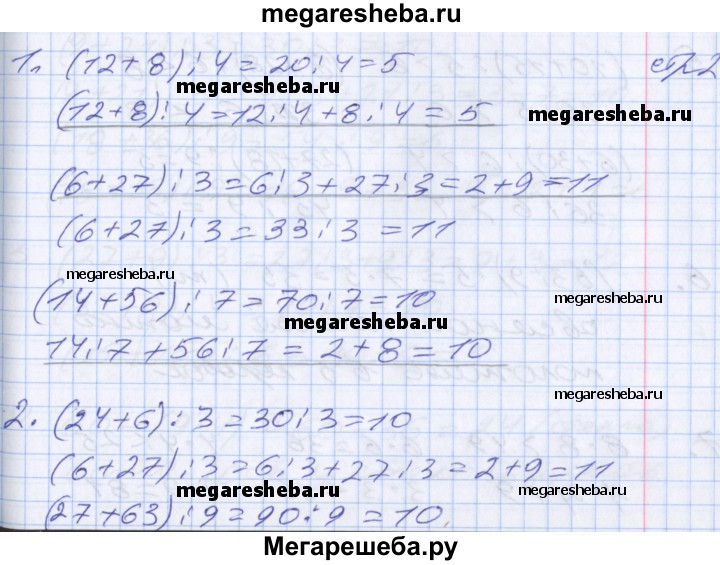 megaresheba.ru
1. (12+8):4=20:4=5 стр.2
megaresheba.ru
(12+8):4=12:4+8:4=5
megaresheba.ru
(6+27):3=6:3+27:3=2+9=11
(6+27):3=33:3=11
megaresheba.ru
megaresheba.ru
(14+56):7=70:7=10
megaresheba.ru
14:7+56:7=2+8=10
megaresheba.ru
2. (24+6):3=30:3=10
(6+27):3=6:3+27:3=2+9=11
megaresheba.ru megaresheba.ru
(27+63):9=90:9=10.
Мегарешеба.ру